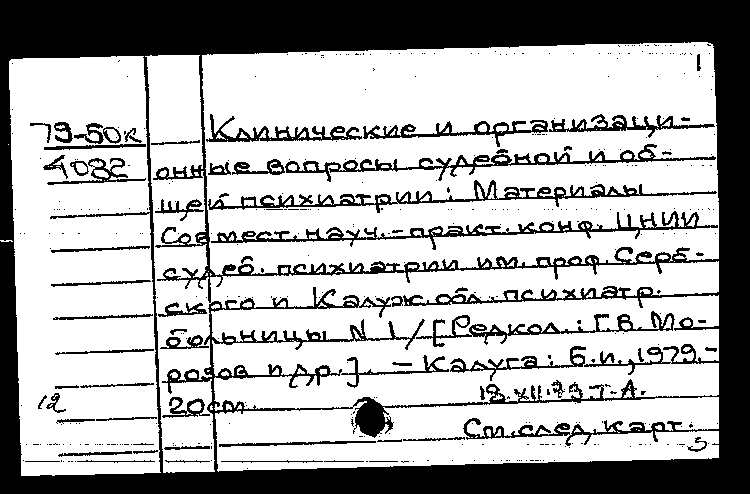 1
79-50к Клинические и организаци-
4032 онные вопросы судебной и об-
щей психиатрии: Материалы
Совмест. науч.-практ. конф. ЦНИИ
судеб. психиатрии им. проф. Серб-
ского и Калуж. обл. психиатр.
больницы N 1/[Редкол.: Г.В. Мо-
розов и др.]. - Калуга: Б.и., 1979.-
12 20см. 18.XII.79. Т-А.
См. след. карт.
5